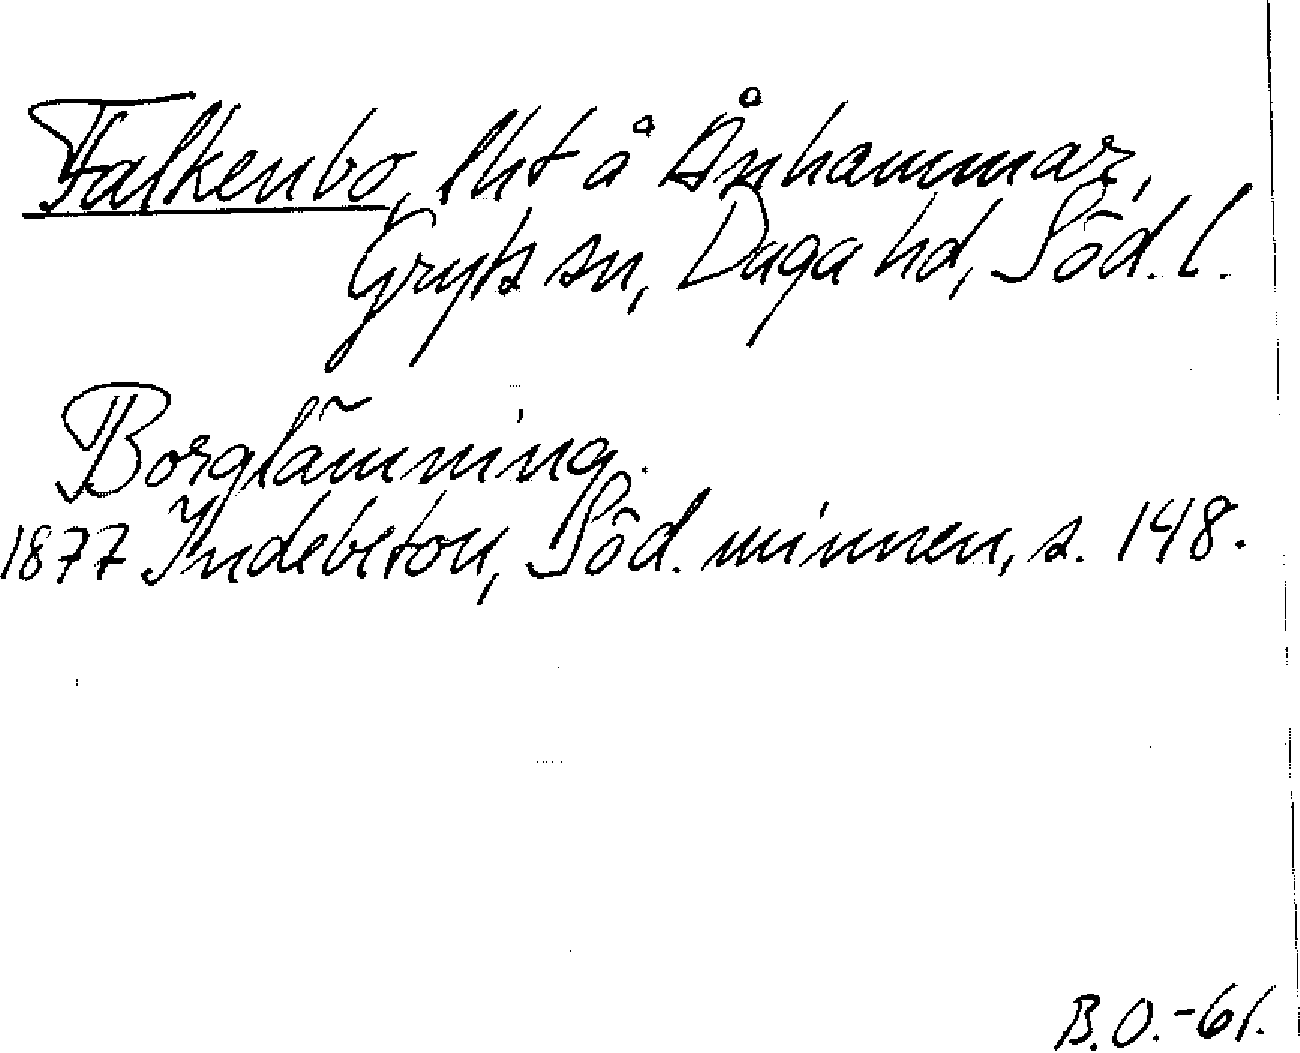 Falkenbo, lht å Ånhammar,
Gryts sn, Daga hd, Söd. l.
Borglämning.
1877 Indebetou, Söd. minnen, s. 148.
B.O.-61.